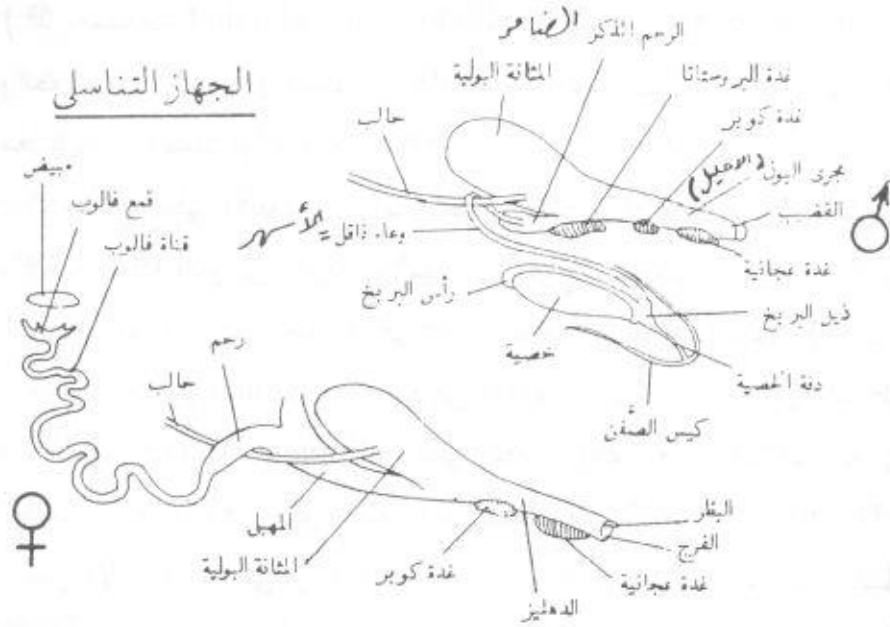 الجهاز التناسلي
الضامر
الرحم الذكر
المثانة البولية
غدة البروستاتا
غدة كوبر
حالب
مجرى البول
(الاحليل)
القضيب
وعاء ناقل
الأسهر
غدة عجانية
رأس البربخ
ذيل البربخ
خصية
دفة الخصية
كيس الصَّفن
مبيض
قمع فالوب
قناة فالوب
رحم
حالب
المهبل
المثانة البولية
غدة كوبر
الدهليز
غدة عجانية
البظر
الفرج